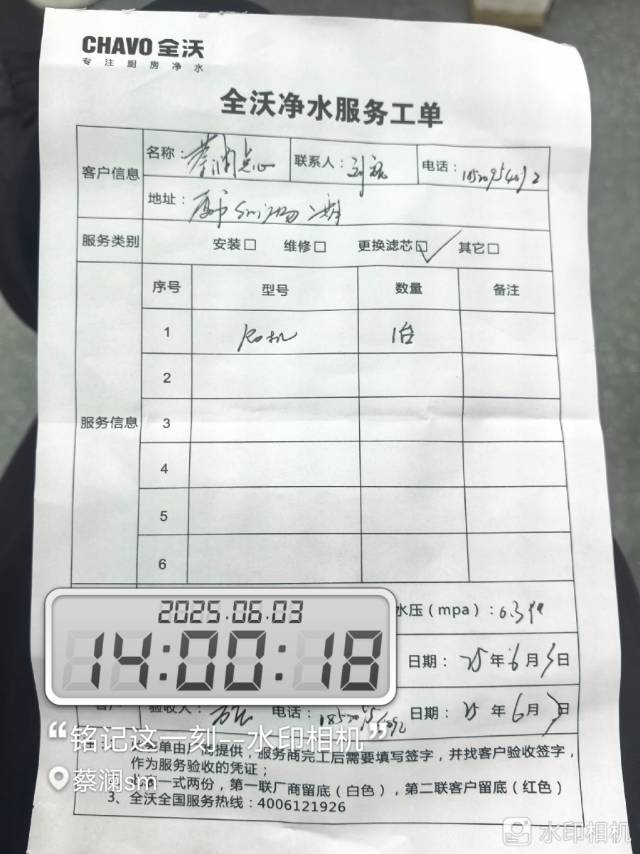 CHAVO 全沃
专注厨房净水
全沃净水服务工单
客户信息
名称：蔡澜点心 联系人： 电话：
地址：
服务类别 安装□ 维修□ 更换滤芯☑ 其它□
服务信息
序号 型号 数量 备注
1 RO机 1台
2
3
4
5
6
水压（mpa）：
2025.06.03
14:00:18
日期：25年6月3日
验收人： 电话： 日期：25年6月3日
“铭记这一刻--水印相机”
提供，服务商完工后需要填写签字，并找客户验收签字，
作为服务验收的凭证；
蔡澜sm
一式两份，第一联厂商留底（白色），第二联客户留底（红色）
3、全沃全国服务热线：4006121926
水印相机